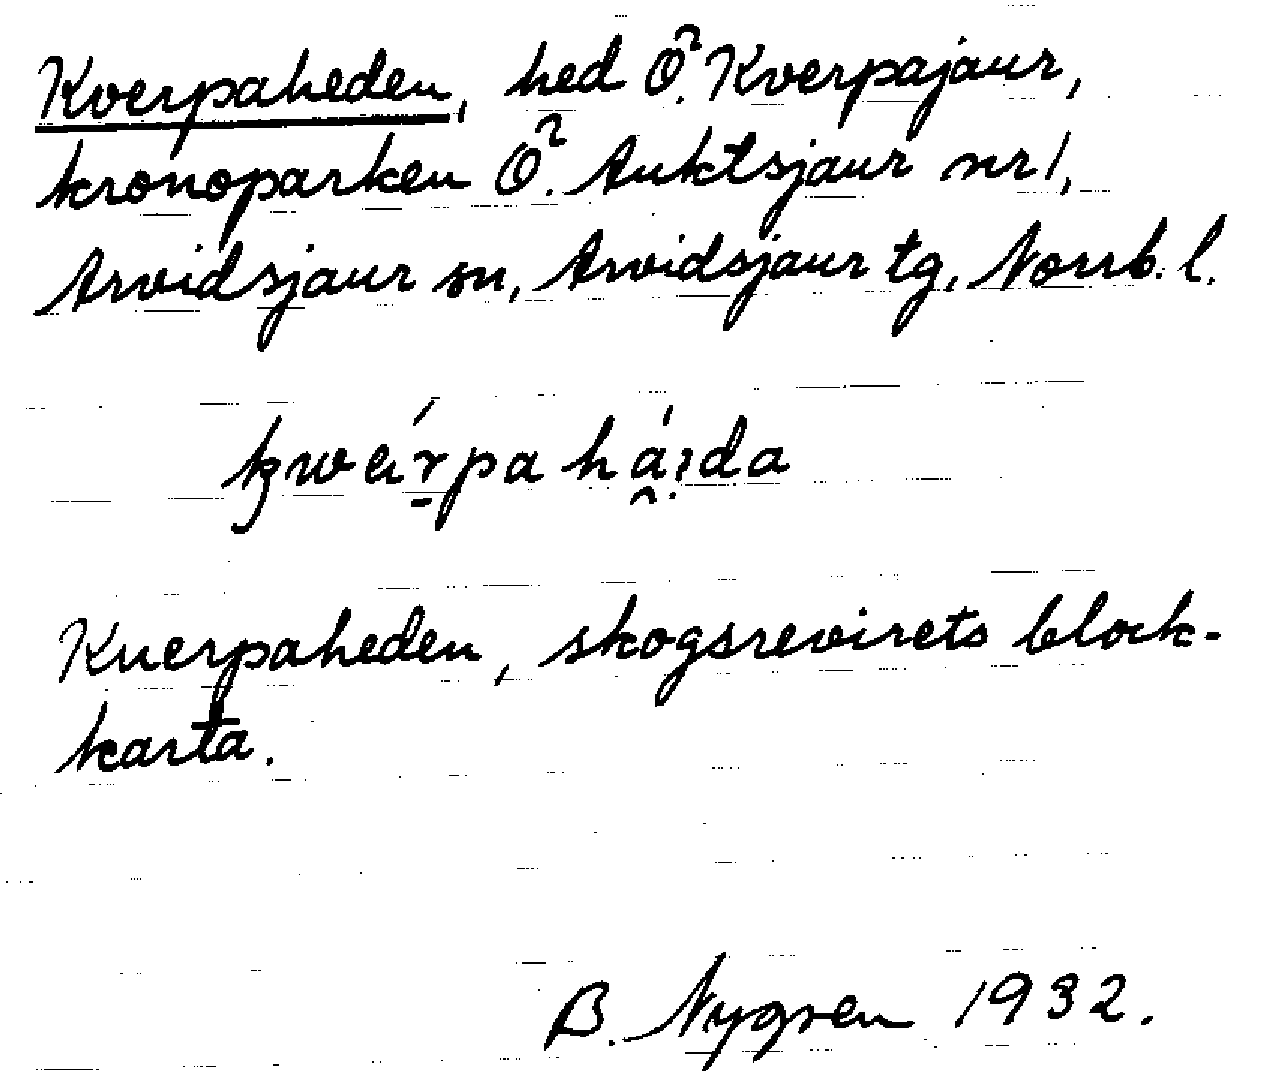 Kverpaheden, hed Ö. Kverpajaur,
kronoparken Ö. Auktsjaur nr 1,
Arvidsjaur sn, Arvidsjaur tg, Norrb. l.
Knerpaheden, skogsrevirets block-
karta.
B. Nygren 1932.